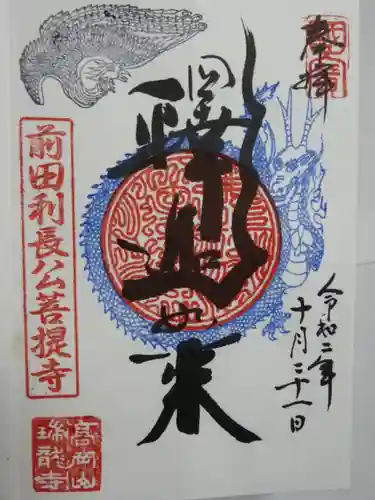 奉拝
令和二年
十月三十一日
釋迦如来
前田利長公菩提寺
高岡山
瑞龍寺